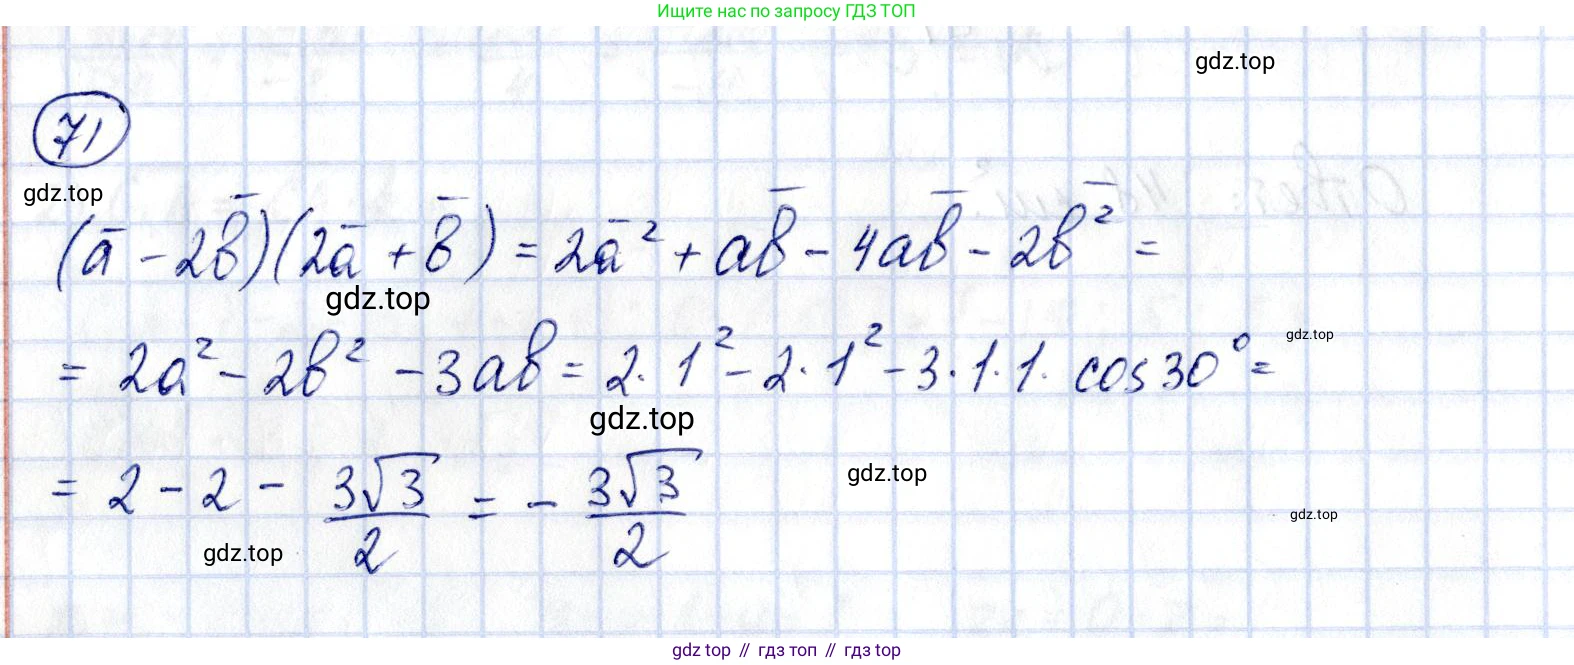 Ищите нас по запросу ГДЗ ТОП
gdz.top
71
gdz.top
(a̅ - 2b̅)(2a̅ + b̅) = 2a̅² + ab̅ - 4ab̅ - 2b̅² =
gdz.top
gdz.top
= 2a² - 2b² - 3ab = 2·1² - 2·1² - 3·1·1·cos30° =
gdz.top
= 2 - 2 - 3√3/2 = - 3√3/2
gdz.top
gdz.top
gdz.top
gdz top // гдз топ // gdz top